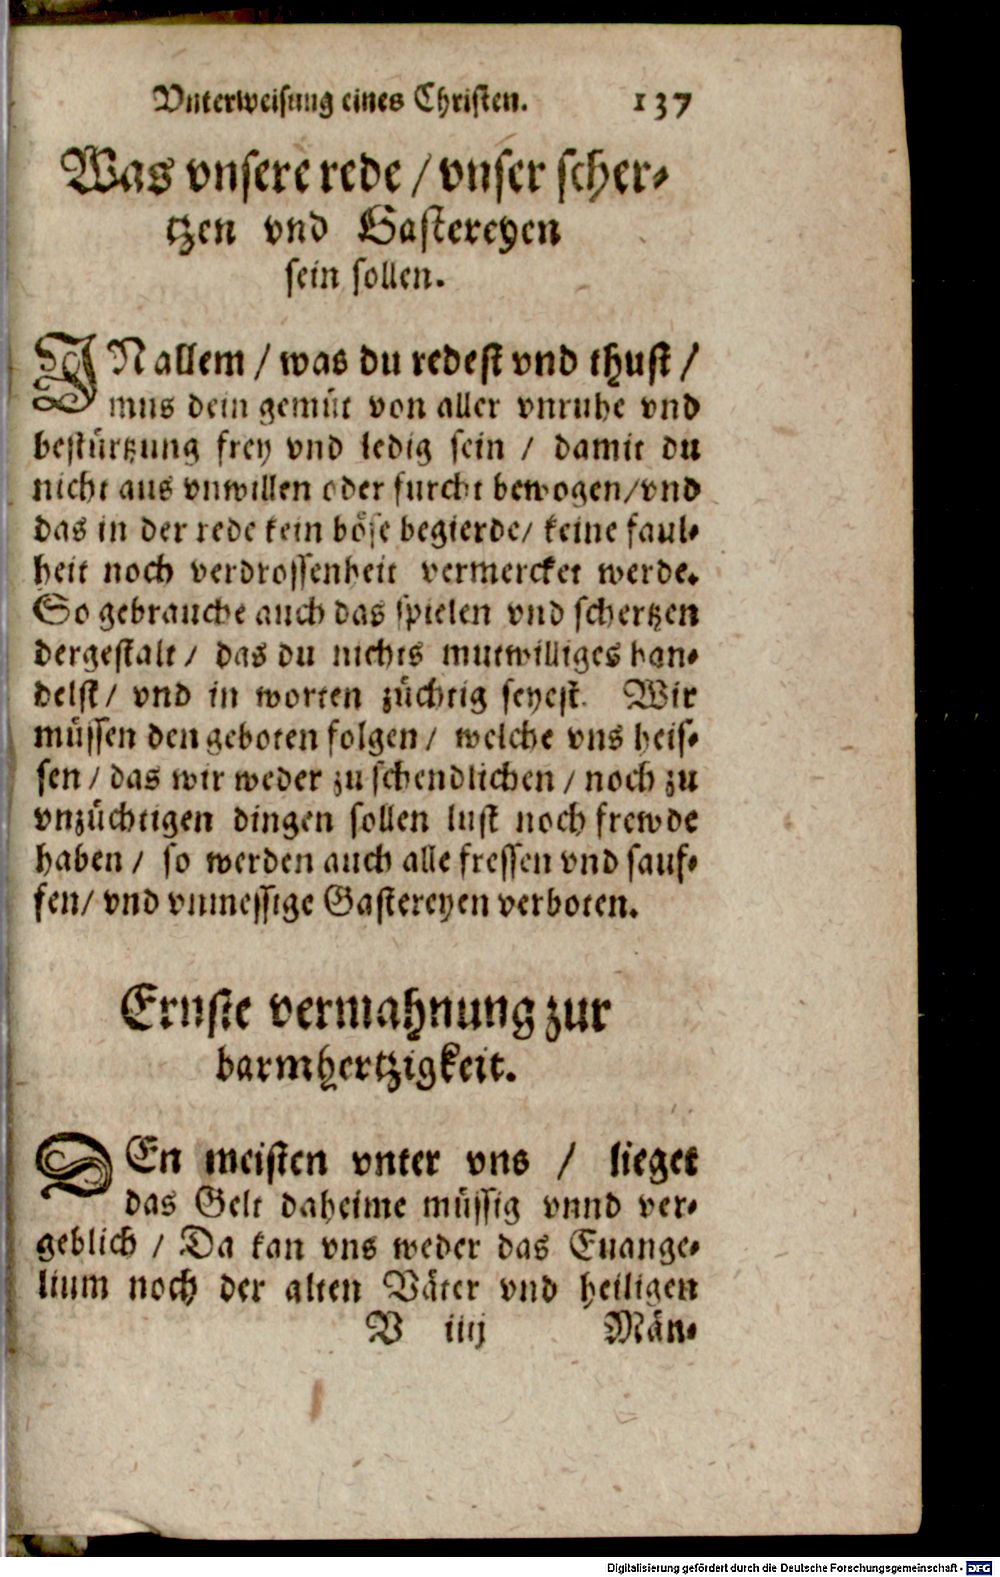 Vnterweisung eines Christen. 137
Was vnsere rede / vnser scher-
tzen vnd Gastereyen
sein sollen.
IN allem / was du redest vnd thust /
mus dein gemüt von aller vnruhe vnd
bestürtzung frey vnd ledig sein / damit du
nicht aus vnwillen oder furcht bewogen/vnd
das in der rede kein böse begierde/ keine faul-
heit noch verdrossenheit vermercket werde.
So gebrauche auch das spielen vnd schertzen
dergestalt / das du nichts mutwilliges han-
delst / vnd in worten züchtig seyest. Wir
müssen den geboten folgen / welche vns heis-
sen / das wir weder zu schendlichen / noch zu
vnzüchtigen dingen sollen lust noch frewde
haben / so werden auch alle fressen vnd sauf-
fen/ vnd vnmessige Gastereyen verboten.
Ernste vermahnung zur
barmhertzigkeit.
DEn meisten vnter vns / lieget
das Gelt daheime müssig vnnd ver-
geblich / Da kan vns weder das Euange-
lium noch der alten Väter vnd heiligen
V iiij Män-
Digitalisierung gefördert durch die Deutsche Forschungsgemeinschaft - DFG